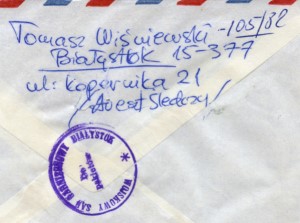 Tomasz Wiśniewski -105/82
Białystok 15-377
ul: Kopernika 21
/Areszt Śledczy/
WOJSKOWY SĄD GARNIZONOWY BIAŁYSTOK